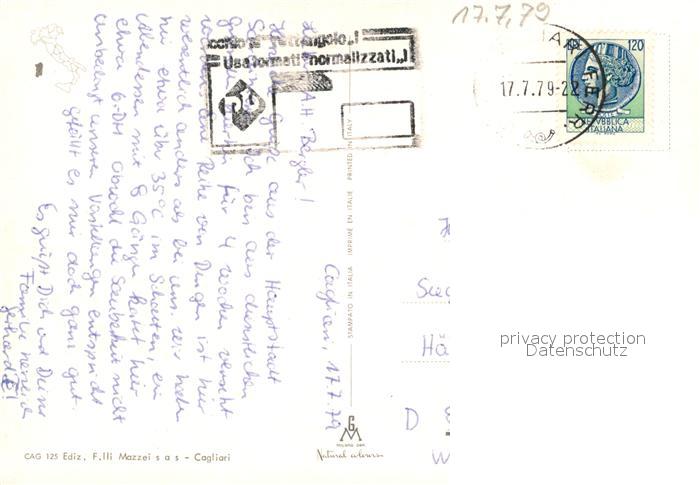 17.7.79
120
REPUBBLICA
ITALIANA
17.7.79-22
"rettangolo"!
Usa formati "normalizzati"!
Cagliari, 17.7.79
Grüße aus der Hauptstadt
Ich bin aus dienstlichen
für 4 Wochen versetzt
eine Reihe von Dingen ist hier
wesentlich anders als bei uns. Wir haben
hier etwa über 35°C im Schatten, ein
Abendessen mit 8 Gängen kostet hier
etwa 6.-DM obwohl die Sauberkeit nicht
unbedingt unseren Vorstellungen entspricht
gefällt es mir doch ganz gut.
Es grüßt Dich und Deine
Familie herzlich
Gerhard
STAMPATO IN ITALIA IMPRIMÉ EN ITALIE PRINTED IN ITALY
D
privacy protection
Datenschutz
GM
MILANO DEP.
Natural colours
CAG 125 Ediz. F.lli Mazzei s a s - Cagliari